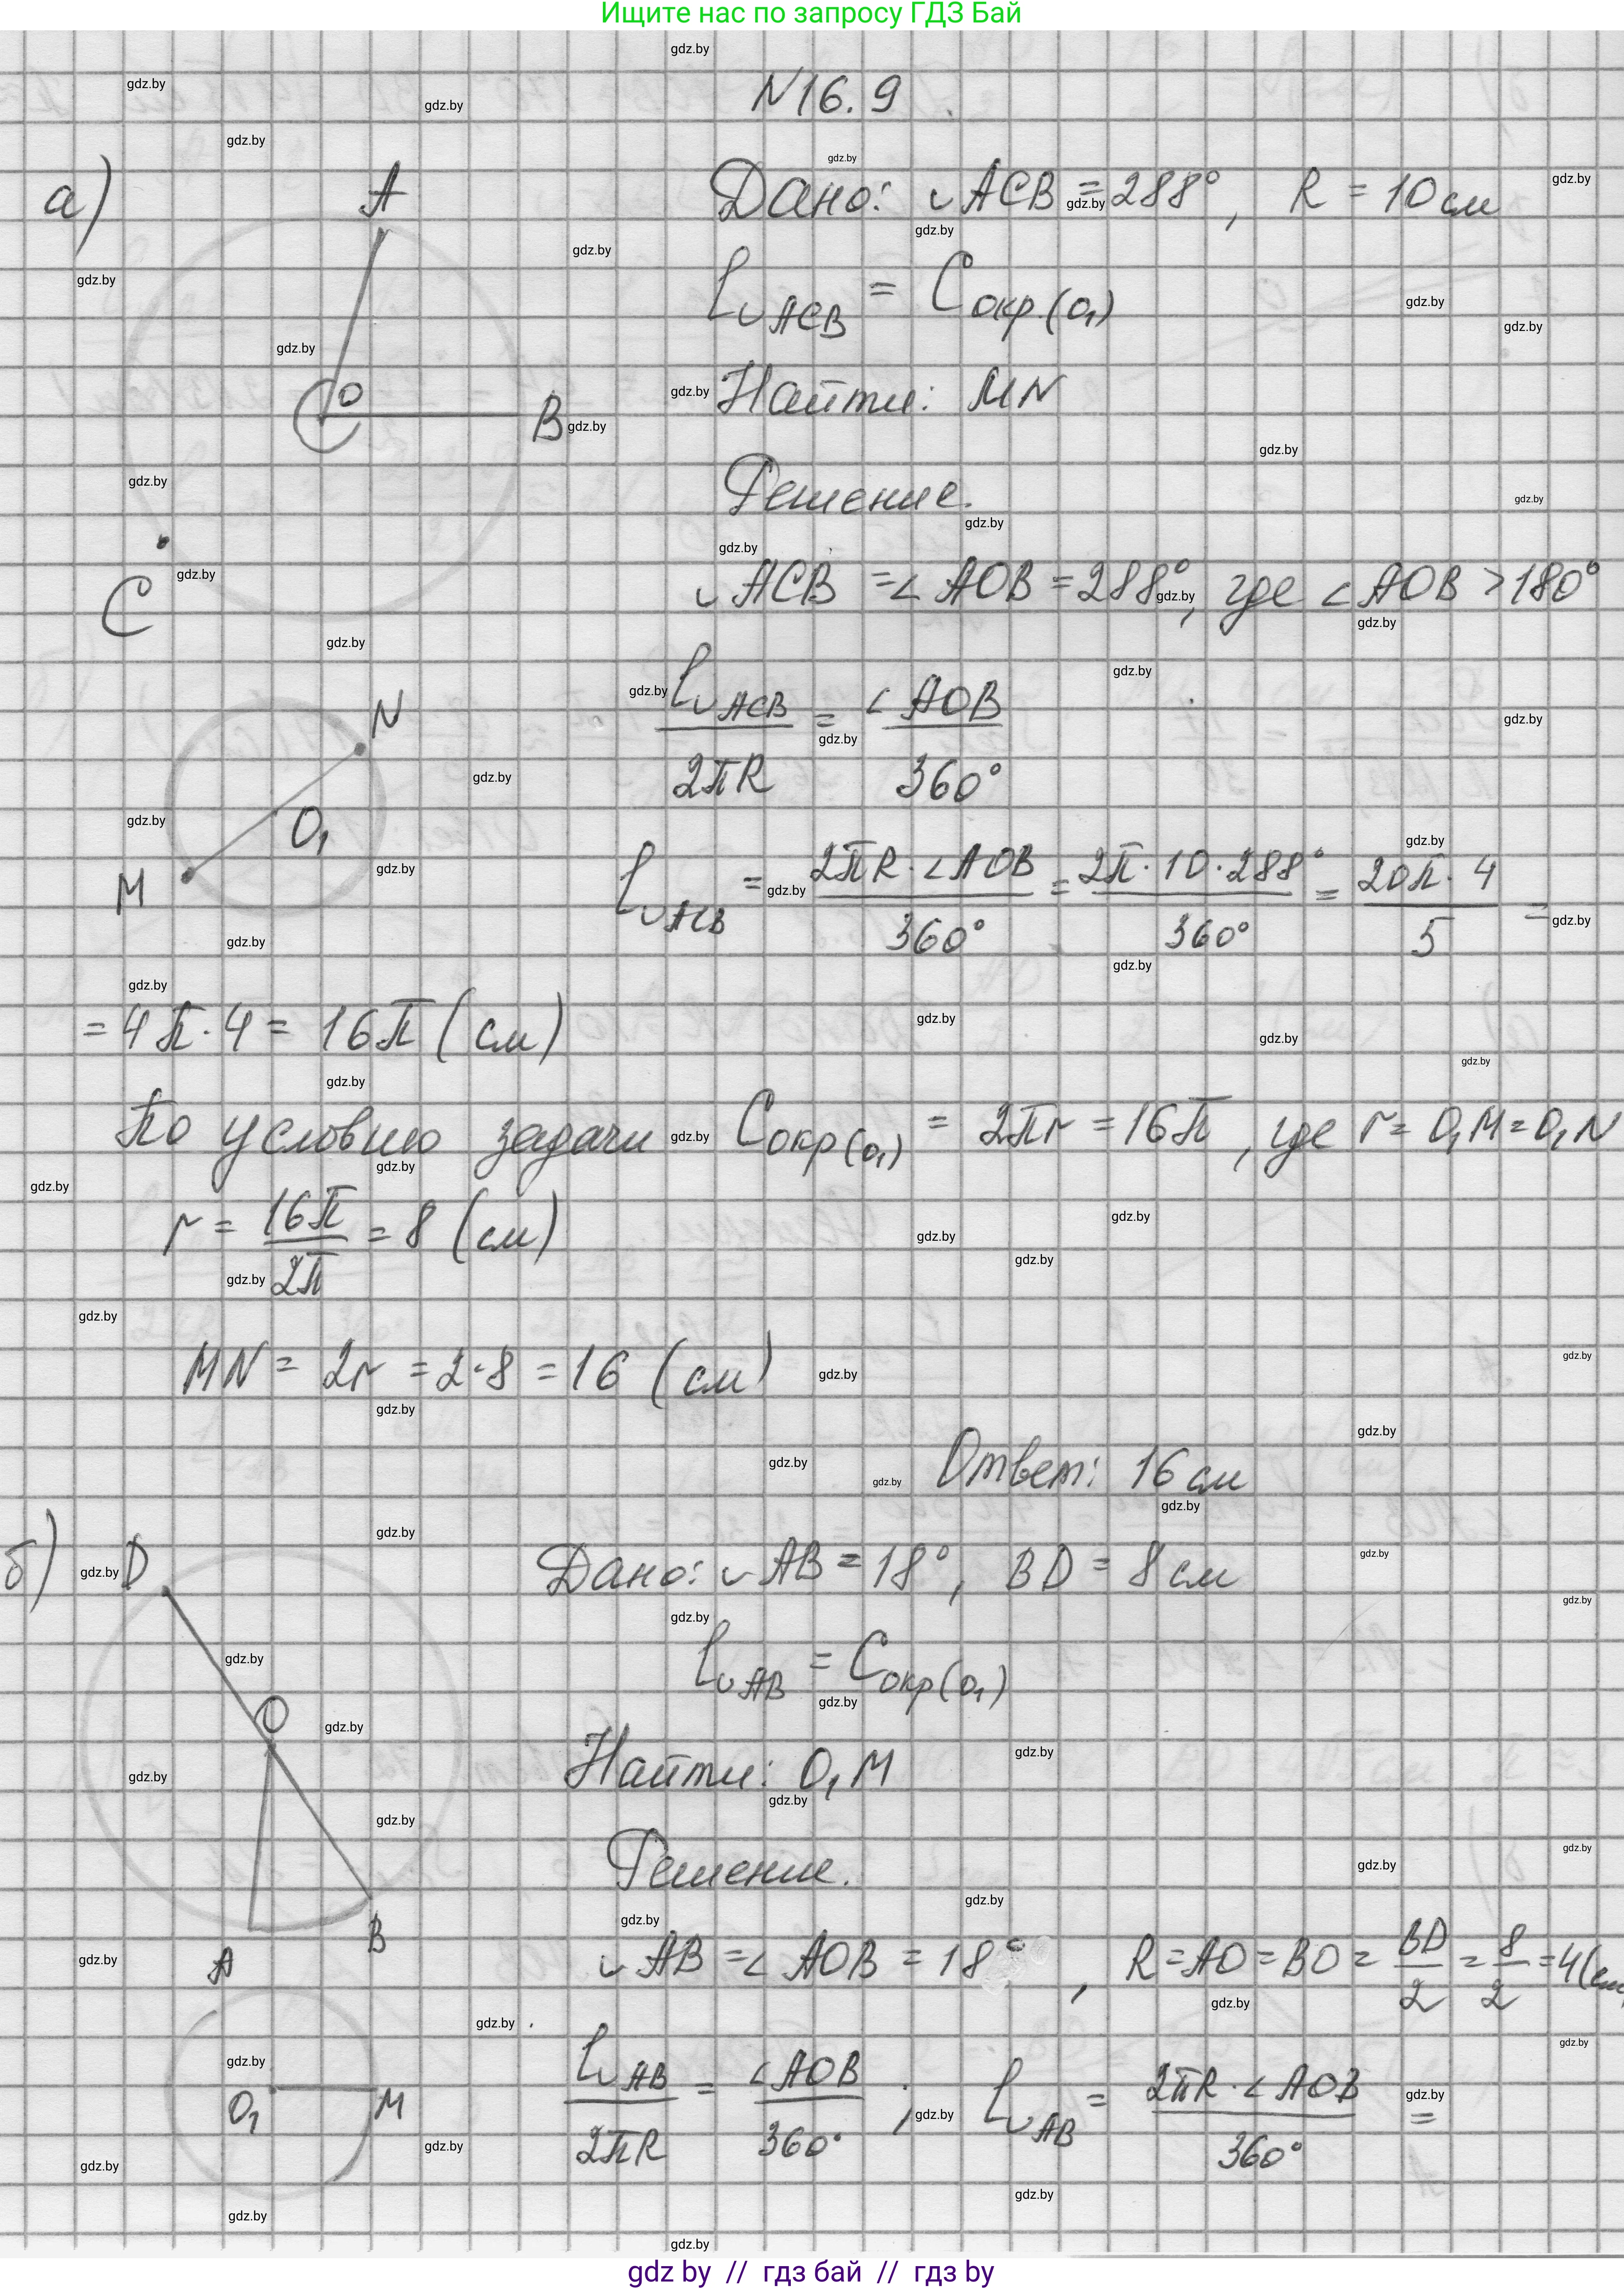 Ищите нас по запросу ГДЗ Бай
N16.9
а)
A
O
B
C
Дано: ◡ACB = 288°, R = 10 см
l◡ACB = Cокр.(O₁)
Найти: MN
Решение.
◡ACB = ∠AOB = 288°, где ∠AOB > 180°
N
O₁
M
l◡ACB / 2πR = ∠AOB / 360°
l◡ACB = 2πR·∠AOB / 360° = 2π·10·288° / 360° = 20π·4 / 5 =
= 4π·4 = 16π (см)
По условию задачи Cокр(O₁) = 2πr = 16π, где r = O₁M = O₁N
r = 16π / 2π = 8 (см)
MN = 2r = 2·8 = 16 (см)
Ответ: 16 см
б)
D
O
A
B
Дано: ◡AB = 18°, BD = 8 см
l◡AB = Cокр(O₁)
Найти: O₁M
Решение.
◡AB = ∠AOB = 18°, R = AO = BO = BD / 2 = 8 / 2 = 4 (см
O₁
M
l◡AB / 2πR = ∠AOB / 360° ; l◡AB = 2πR·∠AOB / 360° =
gdz.by
gdz by // гдз бай // гдз by